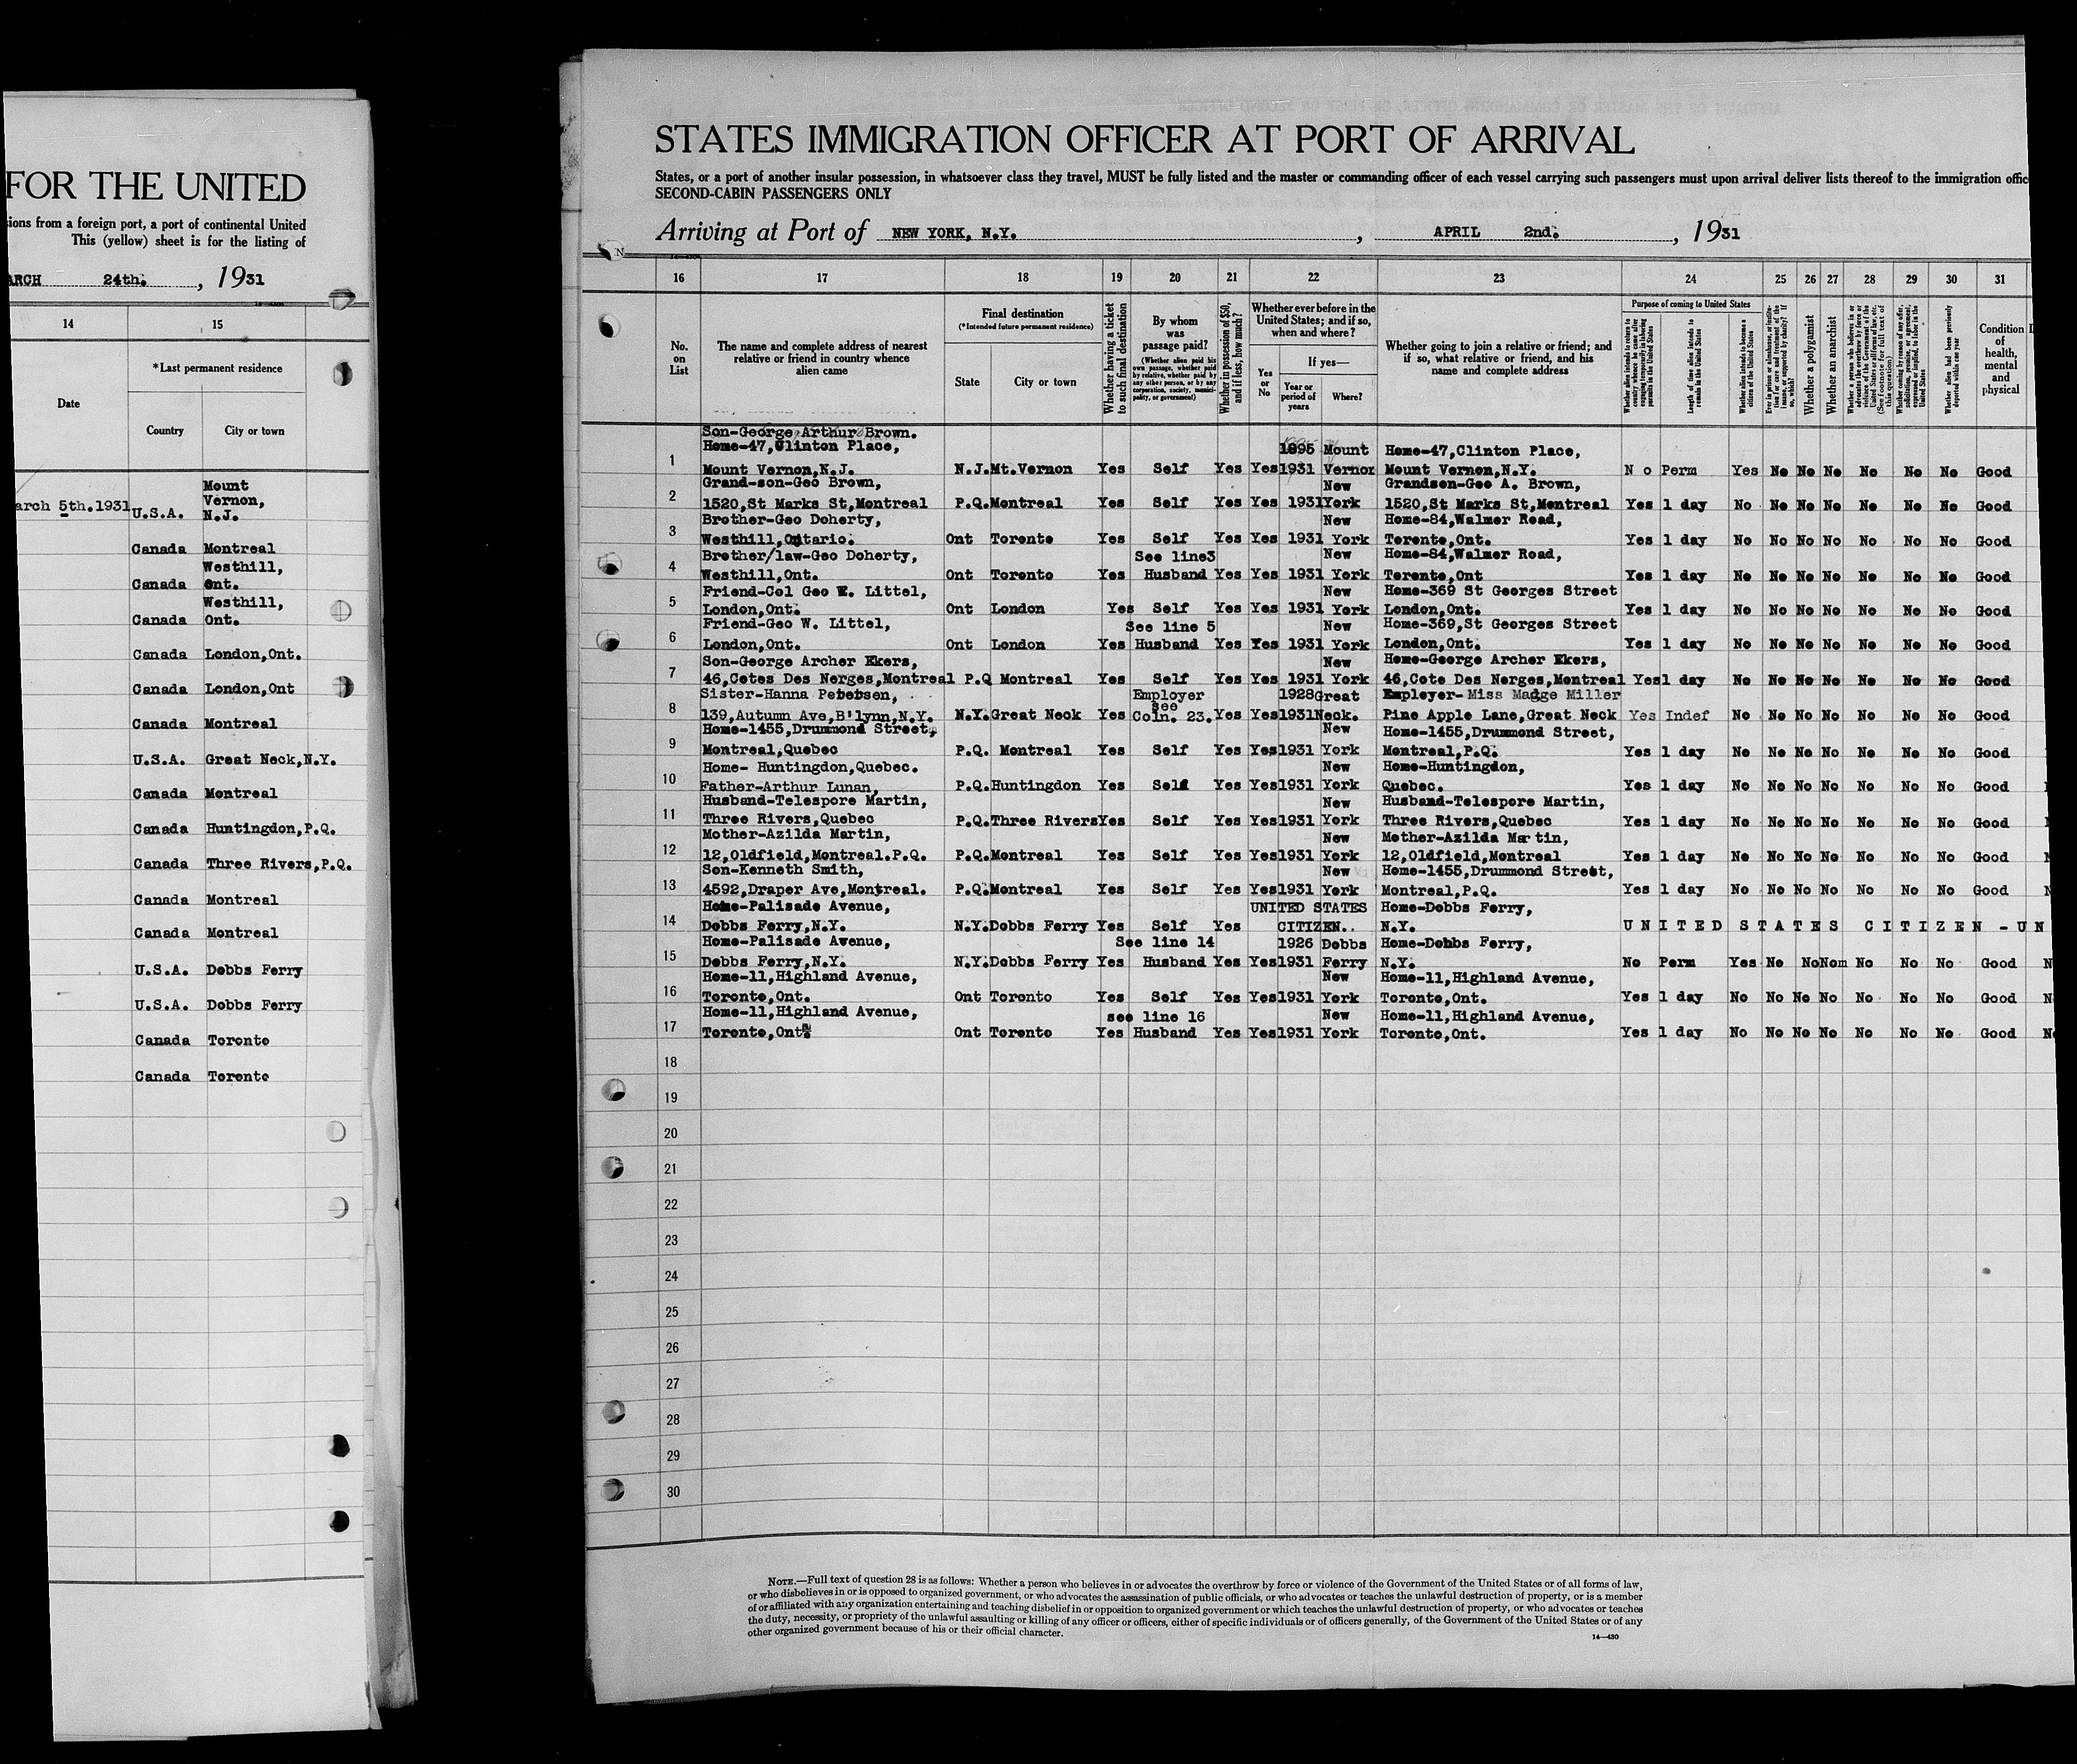 FOR THE UNITED
ions from a foreign port, a port of continental United
This (yellow) sheet is for the listing of
ARCH 24th. , 1931
14 15
*Last permanent residence
Date
Country City or town
arch 5th.1931 U.S.A. Mount Vernon, N.J.
Canada Montreal
Canada Westhill, Ont.
Canada Westhill, Ont.
Canada London,Ont.
Canada London,Ont
Canada Montreal
U.S.A. Great Neck,N.Y.
Canada Montreal
Canada Huntingdon,P.Q.
Canada Three Rivers,P.Q.
Canada Montreal
Canada Montreal
U.S.A. Dobbs Ferry
U.S.A. Dobbs Ferry
Canada Toronto
Canada Toronto
STATES IMMIGRATION OFFICER AT PORT OF ARRIVAL
States, or a port of another insular possession, in whatsoever class they travel, MUST be fully listed and the master or commanding officer of each vessel carrying such passengers must upon arrival deliver lists thereof to the immigration offic
SECOND-CABIN PASSENGERS ONLY
Arriving at Port of NEW YORK, N.Y. , APRIL 2nd. , 1931
16 17 18 19 20 21 22 23 24 25 26 27 28 29 30 31
No. on List
The name and complete address of nearest relative or friend in country whence alien came
Final destination
(*Intended future permanent residence)
State City or town
Whether having a ticket to such final destination
By whom was passage paid?
(Whether alien paid his own passage, whether paid by relative, whether paid by any other person, or by any corporation, society, municipality, or government)
Whether in possession of $50, and if less, how much?
Whether ever before in the United States; and if so, when and where?
Yes or No
If yes—
Year or period of years
Where?
Whether going to join a relative or friend; and if so, what relative or friend, and his name and complete address
Purpose of coming to United States
Whether alien intends to return to country whence he came after engaging temporarily in laboring pursuits in the United States
Length of time alien intends to remain in the United States
Whether alien intends to become a citizen of the United States
Whether a polygamist
Whether an anarchist
(See footnote for full text of this question)
Whether coming by reason of any offer, solicitation, promise, or agreement, expressed or implied, to labor in the United States
Whether alien had been previously deported within one year
Condition of health, mental and physical
Son-George Arthur Brown.
Home-47,Clinton Place, 1895 Mount Home-47,Clinton Place,
1 Mount Vernon,N.J. N.J. Mt.Vernon Yes Self Yes Yes 1931 Vernon Mount Vernon,N.Y. No Perm Yes No No No No No No Good
Grand-son-Geo Brown, New Grandson-Geo A. Brown,
2 1520,St Marks St,Montreal P.Q. Montreal Yes Self Yes Yes 1931 York 1520,St Marks St,Montreal Yes 1 day No No No No No No No Good
Brother-Geo Doherty, New Home-84,Walmer Road,
3 Westhill,Ontario. Ont Toronto Yes Self Yes Yes 1931 York Toronto,Ont. Yes 1 day No No No No No No No Good
Brother/law-Geo Doherty, See line3 New Home-84,Walmer Road,
4 Westhill,Ont. Ont Toronto Yes Husband Yes Yes 1931 York Toronto,Ont Yes 1 day No No No No No No No Good
Friend-Col Geo W. Littel, New Home-369 St Georges Street
5 London,Ont. Ont London Yes Self Yes Yes 1931 York London,Ont. Yes 1 day No No No No No No No Good
Friend-Geo W. Littel, See line 5 New Home-369,St Georges Street
6 London,Ont. Ont London Yes Husband Yes Yes 1931 York London,Ont. Yes 1 day No No No No No No No Good
Son-George Archer Ekers, New Home-George Archer Ekers,
7 46,Cotes Des Nerges,Montreal P.Q Montreal Yes Self Yes Yes 1931 York 46,Cote Des Nerges,Montreal Yes 1 day No No No No No No No Good
Sister-Hanna Petersen, Employer see 1928 Great Employer-Miss Madge Miller
8 139,Autumn Ave,B'lynn,N.Y. N.Y. Great Neck Yes Coln. 23. Yes Yes 1931 Neck. Pine Apple Lane,Great Neck Yes Indef No No No No No No No Good
Home-1455,Drummond Street, New Home-1455,Drummond Street,
9 Montreal,Quebec P.Q. Montreal Yes Self Yes Yes 1931 York Montreal,P.Q. Yes 1 day No No No No No No No Good
Home- Huntingdon,Quebec. New Home-Huntingdon,
10 Father-Arthur Lunan, P.Q. Huntingdon Yes Self Yes Yes 1931 York Quebec. Yes 1 day No No No No No No No Good
Husband-Telespore Martin, New Husband-Telespore Martin,
11 Three Rivers,Quebec P.Q. Three Rivers Yes Self Yes Yes 1931 York Three Rivers,Quebec Yes 1 day No No No No No No No Good
Mother-Azilda Martin, New Mother-Azilda Martin,
12 12,Oldfield,Montreal.P.Q. P.Q. Montreal Yes Self Yes Yes 1931 York 12,Oldfield,Montreal Yes 1 day No No No No No No No Good
Son-Kenneth Smith, New Home-1455,Drummond Street,
13 4592,Draper Ave,Montreal. P.Q. Montreal Yes Self Yes Yes 1931 York Montreal,P.Q. Yes 1 day No No No No No No No Good
Home-Palisade Avenue, UNITED STATES Home-Dobbs Ferry,
14 Dobbs Ferry,N.Y. N.Y. Dobbs Ferry Yes Self Yes CITIZEN.. N.Y. UNITED STATES CITIZEN -UN
Home-Palisade Avenue, See line 14 1926 Dobbs Home-Dobbs Ferry,
15 Dobbs Ferry,N.Y. N.Y. Dobbs Ferry Yes Husband Yes Yes 1931 Ferry N.Y. No Perm Yes No No Nom No No No Good N
Home-11,Highland Avenue, New Home-11,Highland Avenue,
16 Toronto,Ont. Ont Toronto Yes Self Yes Yes 1931 York Toronto,Ont. Yes 1 day No No No No No No No Good N
Home-11,Highland Avenue, see line 16 New Home-11,Highland Avenue,
17 Toronto,Ont. Ont Toronto Yes Husband Yes Yes 1931 York Toronto,Ont. Yes 1 day No No No No No No No Good No
18
19
20
21
22
23
24
25
26
27
28
29
30
NOTE.—Full text of question 28 is as follows: Whether a person who believes in or advocates the overthrow by force or violence of the Government of the United States or of all forms of law,
or who disbelieves in or is opposed to organized government, or who advocates the assassination of public officials, or who advocates or teaches the unlawful destruction of property, or is a member
of or affiliated with any organization entertaining and teaching disbelief in or opposition to organized government or which teaches the unlawful destruction of property, or who advocates or teaches
the duty, necessity, or propriety of the unlawful assaulting or killing of any officer or officers, either of specific individuals or of officers generally, of the Government of the United States or of any
other organized government because of his or their official character.
14—430